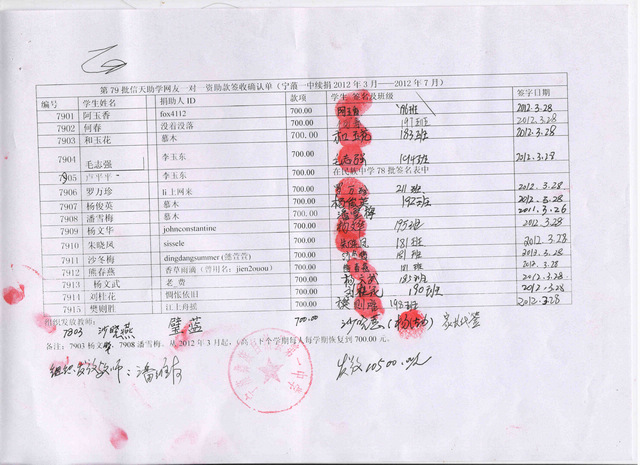 第79批信天助学网友一对一资助款签收确认单（宁蒗一中续捐2012年3月——2012年7月）
编号 学生姓名 捐助人ID 款项 学生签名及班级 签字日期
7901 阿玉香 fox4112 700.00 阿玉香 2012.3.28
7902 何春 没着没落 700.00 191班 2012.3.28
7903 和玉花 慕木 700.00 和玉花 183班 2012.3.28
7904 毛志强 李玉东 700.00 毛志强 194班 2012.3.28
7905 卢平平 李玉东 700.00 在民族中学78批签名表中
7906 罗万珍 li上网来 700.00 罗万珍 211班 2012.3.28
7907 杨俊英 慕木 700.00 杨俊英 192班 2012.3.28
7908 潘雪梅 慕木 700.00 潘雪梅 2011.3.26
7909 杨文华 johnconstantine 700.00 杨文华 195班 2012.3.28
7910 朱晓凤 sissele 700.00 181班 2012.3.28
7911 沙冬梅 dingdangsummer 700.00 181班 2012.3.28
7912 熊春燕 香草雨滴（曾用名：jien2ouou） 700.00 181班 2012.3.28
7913 杨文武 老费 700.00 杨文武 183班 2012.3.28
7914 刘桂花 惆怅依旧 700.00 刘桂花 190班 2012.3.28
7915 樊则胜 江上舟摇 700.00 198班 2012.3.28
组织发放教师：
7803 沙晓燕 壁蓝 700.00 家长代签
备注：7903 7908潘雪梅，从2012年3月起，下个学期每人每学期恢复到700.00元。
组织发放教师：潘
发放10500.00元